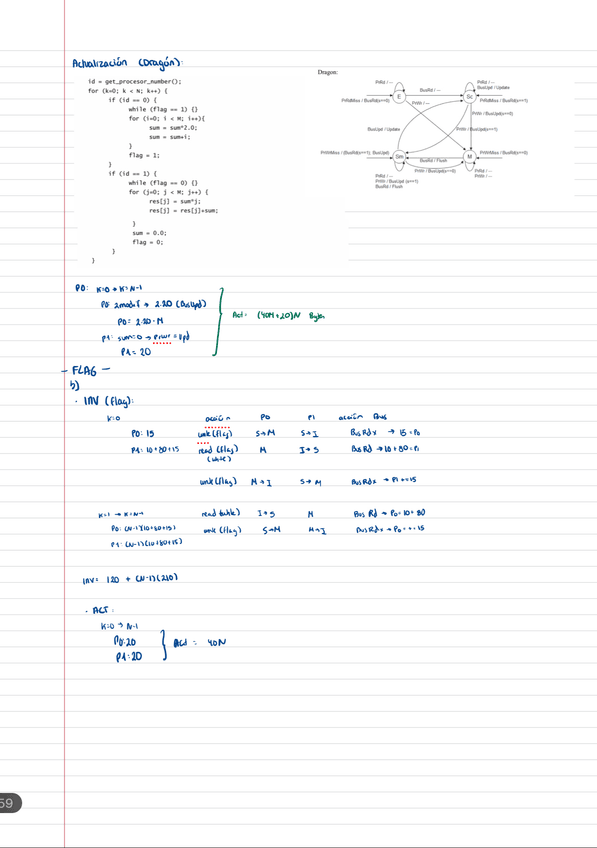 Actualización (Dragón):
id = get_procesor_number();
for (k=0; k < N; k++) {
if (id == 0) {
while (flag == 1) {}
for (i=0; i < M; i++){
sum = sum*2.0;
sum = sum+i;
}
flag = 1;
}
if (id == 1) {
while (flag == 0) {}
for (j=0; j < M; j++) {
res[j] = sum*j;
res[j] = res[j]+sum;
}
sum = 0.0;
flag = 0;
}
}
Dragon:
PrRd / --
BusRd / --
PrRd / --
BusUpd / Update
E
Sc
PrRdMiss / BusRd(s==0)
PrWr / --
PrRdMiss / BusRd(s==1)
PrWr / BusUpd(s==0)
BusUpd / Update
PrWr / BusUpd(s==1)
PrWrMiss / (BusRd(s==1); BusUpd)
Sm
BusRd / Flush
M
PrWrMiss / BusRd(s==0)
PrWr / BusUpd(s==0)
PrRd / --
PrWr / BusUpd (s==1)
BusRd / Flush
PrRd / --
PrWr / --
P0: K=0 → K=N-1
P0: 2modif → 2·20 (BusUpd)
P0= 2·20·M
P1: sum=0 → PrWr = Upd
P1= 20
Act= (40M+20)N Bytes
- FLAG -
b)
· INV (flag):
K=0 acción P0 P1 acción Bus
P0: 15 write(flag) S→M S→I BusRdx → 15=P0
P1: 10+80+15 read (flag) M I→S BusRd → 10+80=P1
(while)
write(flag) M→I S→M BusRdx → P1 +=15
K=1 → K=N-1 read (while) I→S M Bus Rd → P0=10+80
P0: (N-1)(10+80+15) write (flag) S→M M→I BusRdx → P0 += 15
P1: (N-1)(10+80+15)
INV= 120 + (N-1)(210)
· ACT:
K=0 → N-1
P0:20
P1:20
Act = 40N
59